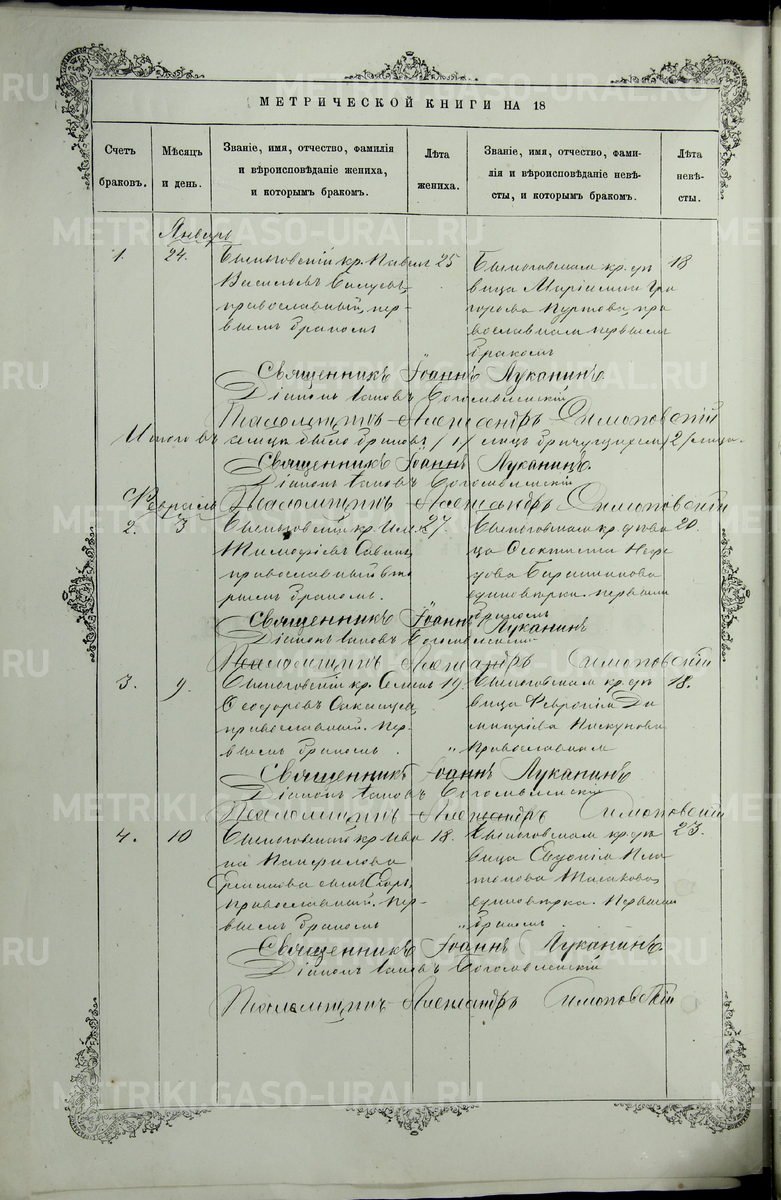 МЕТРИЧЕСКОЙ КНИГИ НА 18
Счетъ браковъ.
Мѣсяцъ и день.
Званіе, имя, отчество, фамилія и вѣроисповѣданіе жениха, и которымъ бракомъ.
Лѣта жениха.
Званіе, имя, отчество, фамилія и вѣроисповѣданіе невѣсты, и которымъ бракомъ.
Лѣта невѣсты.
Январь
1. 24.
Быньговскій кр. Павелъ 25
Васильевъ
православный, пер-
вымъ бракомъ
Быньговская кр. дѣ- 18
вица Маріамна Гри
горьева пра
вославная первымъ
бракомъ
Священникъ Іоаннъ Луканинъ
Діаконъ Іаковъ Богоявленскій
Псаломщикъ Александръ Симановскій
Итого въ было браковъ /1/ лицъ /2/ лица.
Священникъ Іоаннъ Луканинъ.
Діаконъ Іаковъ Богоявленскій
Псаломщикъ Александръ Симановскій
Февраль
2. 3
Быньговскій кр. 27.
Тимофѣевъ
православный вто
рымъ бракомъ.
Быньговская кр. дѣви 20.
ца Феоктиста
единовѣрка. первымъ
бракомъ
Священникъ Іоаннъ Луканинъ
Діаконъ Іаковъ Богоявленскій
Псаломщикъ Александръ Симановскій
3. 9.
Быньговскій кр. 19.
Ѳеодоровъ
православный. пер-
вымъ бракомъ.
Быньговская кр. дѣ- 18.
вица Февронія Ди
митріева Пискунова
православная
Священникъ Іоаннъ Луканинъ
Діаконъ Іаковъ Богоявленскій
Псаломщикъ Александръ Симановскій
4. 10
Быньговскій кр. Ива 18.
на Панфилова
сынъ
православный. пер-
вымъ бракомъ
Быньговская кр. дѣ- 23.
вица Евдокія Пла
тонова
единовѣрка. первымъ
бракомъ.
Священникъ Іоаннъ Луканинъ.
Діаконъ Іаковъ Богоявленскій
Псаломщикъ Александръ Симановскій
METRIKI.GASO-URAL.RU